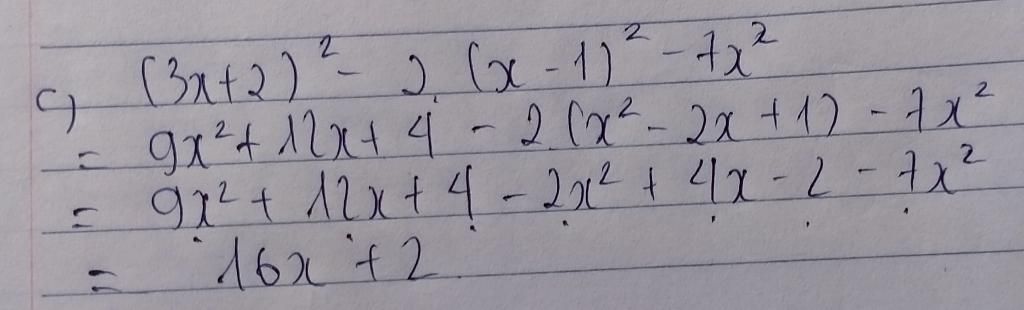 c) (3x+2)² - 2.(x-1)² - 7x²
= 9x² + 12x + 4 - 2.(x² - 2x + 1) - 7x²
= 9x² + 12x + 4 - 2x² + 4x - 2 - 7x²
= 16x + 2